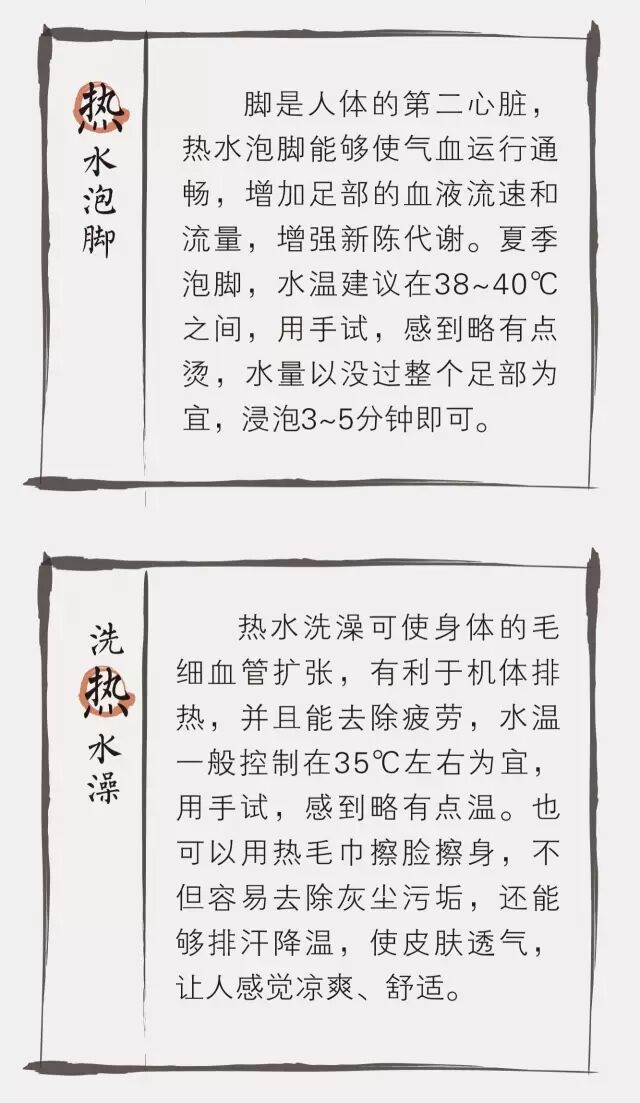 热水泡脚
脚是人体的第二心脏，
热水泡脚能够使气血运行通
畅，增加足部的血液流速和
流量，增强新陈代谢。夏季
泡脚，水温建议在38~40℃
之间，用手试，感到略有点
烫，水量以没过整个足部为
宜，浸泡3~5分钟即可。
洗热水澡
热水洗澡可使身体的毛
细血管扩张，有利于机体排
热，并且能去除疲劳，水温
一般控制在35℃左右为宜，
用手试，感到略有点温。也
可以用热毛巾擦脸擦身，不
但容易去除灰尘污垢，还能
够排汗降温，使皮肤透气，
让人感觉凉爽、舒适。